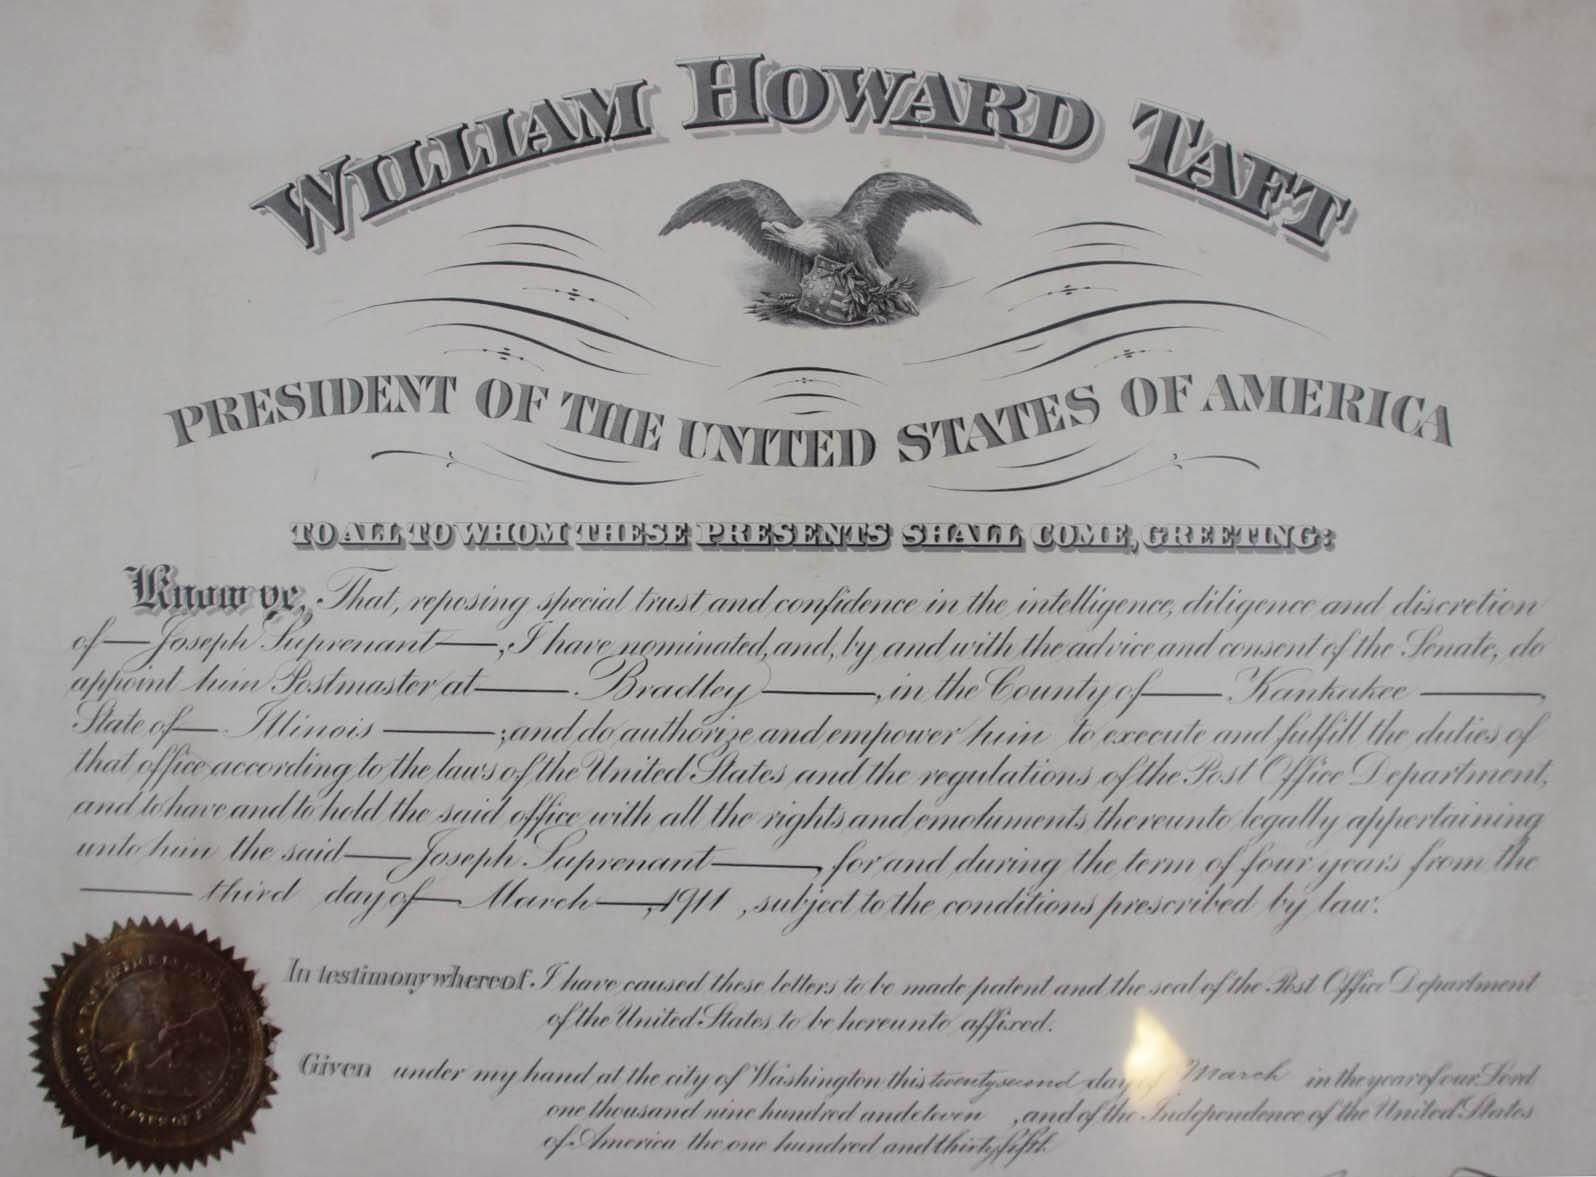 WILLIAM HOWARD TAFT
PRESIDENT OF THE UNITED STATES OF AMERICA
TO ALL TO WHOM THESE PRESENTS SHALL COME, GREETING:
Know ye, That, reposing special trust and confidence in the intelligence, diligence and discretion
of — Joseph Suprenant —, I have nominated, and, by and with the advice and consent of the Senate, do
appoint him Postmaster at — Bradley —, in the County of — Kankakee —,
State of — Illinois —; and do authorize and empower him to execute and fulfill the duties of
that office according to the laws of the United States and the regulations of the Post Office Department,
and to have and to hold the said office with all the rights and emoluments thereunto legally appertaining
unto him the said — Joseph Suprenant —, for and during the term of four years from the
— third day of — March —, 1911, subject to the conditions prescribed by law.
In testimony whereof, I have caused these letters to be made patent and the seal of the Post Office Department
of the United States to be hereunto affixed.
Given under my hand at the city of Washington this twenty second day of March in the year of our Lord
one thousand nine hundred and eleven, and of the Independence of the United States
of America the one hundred and thirty fifth